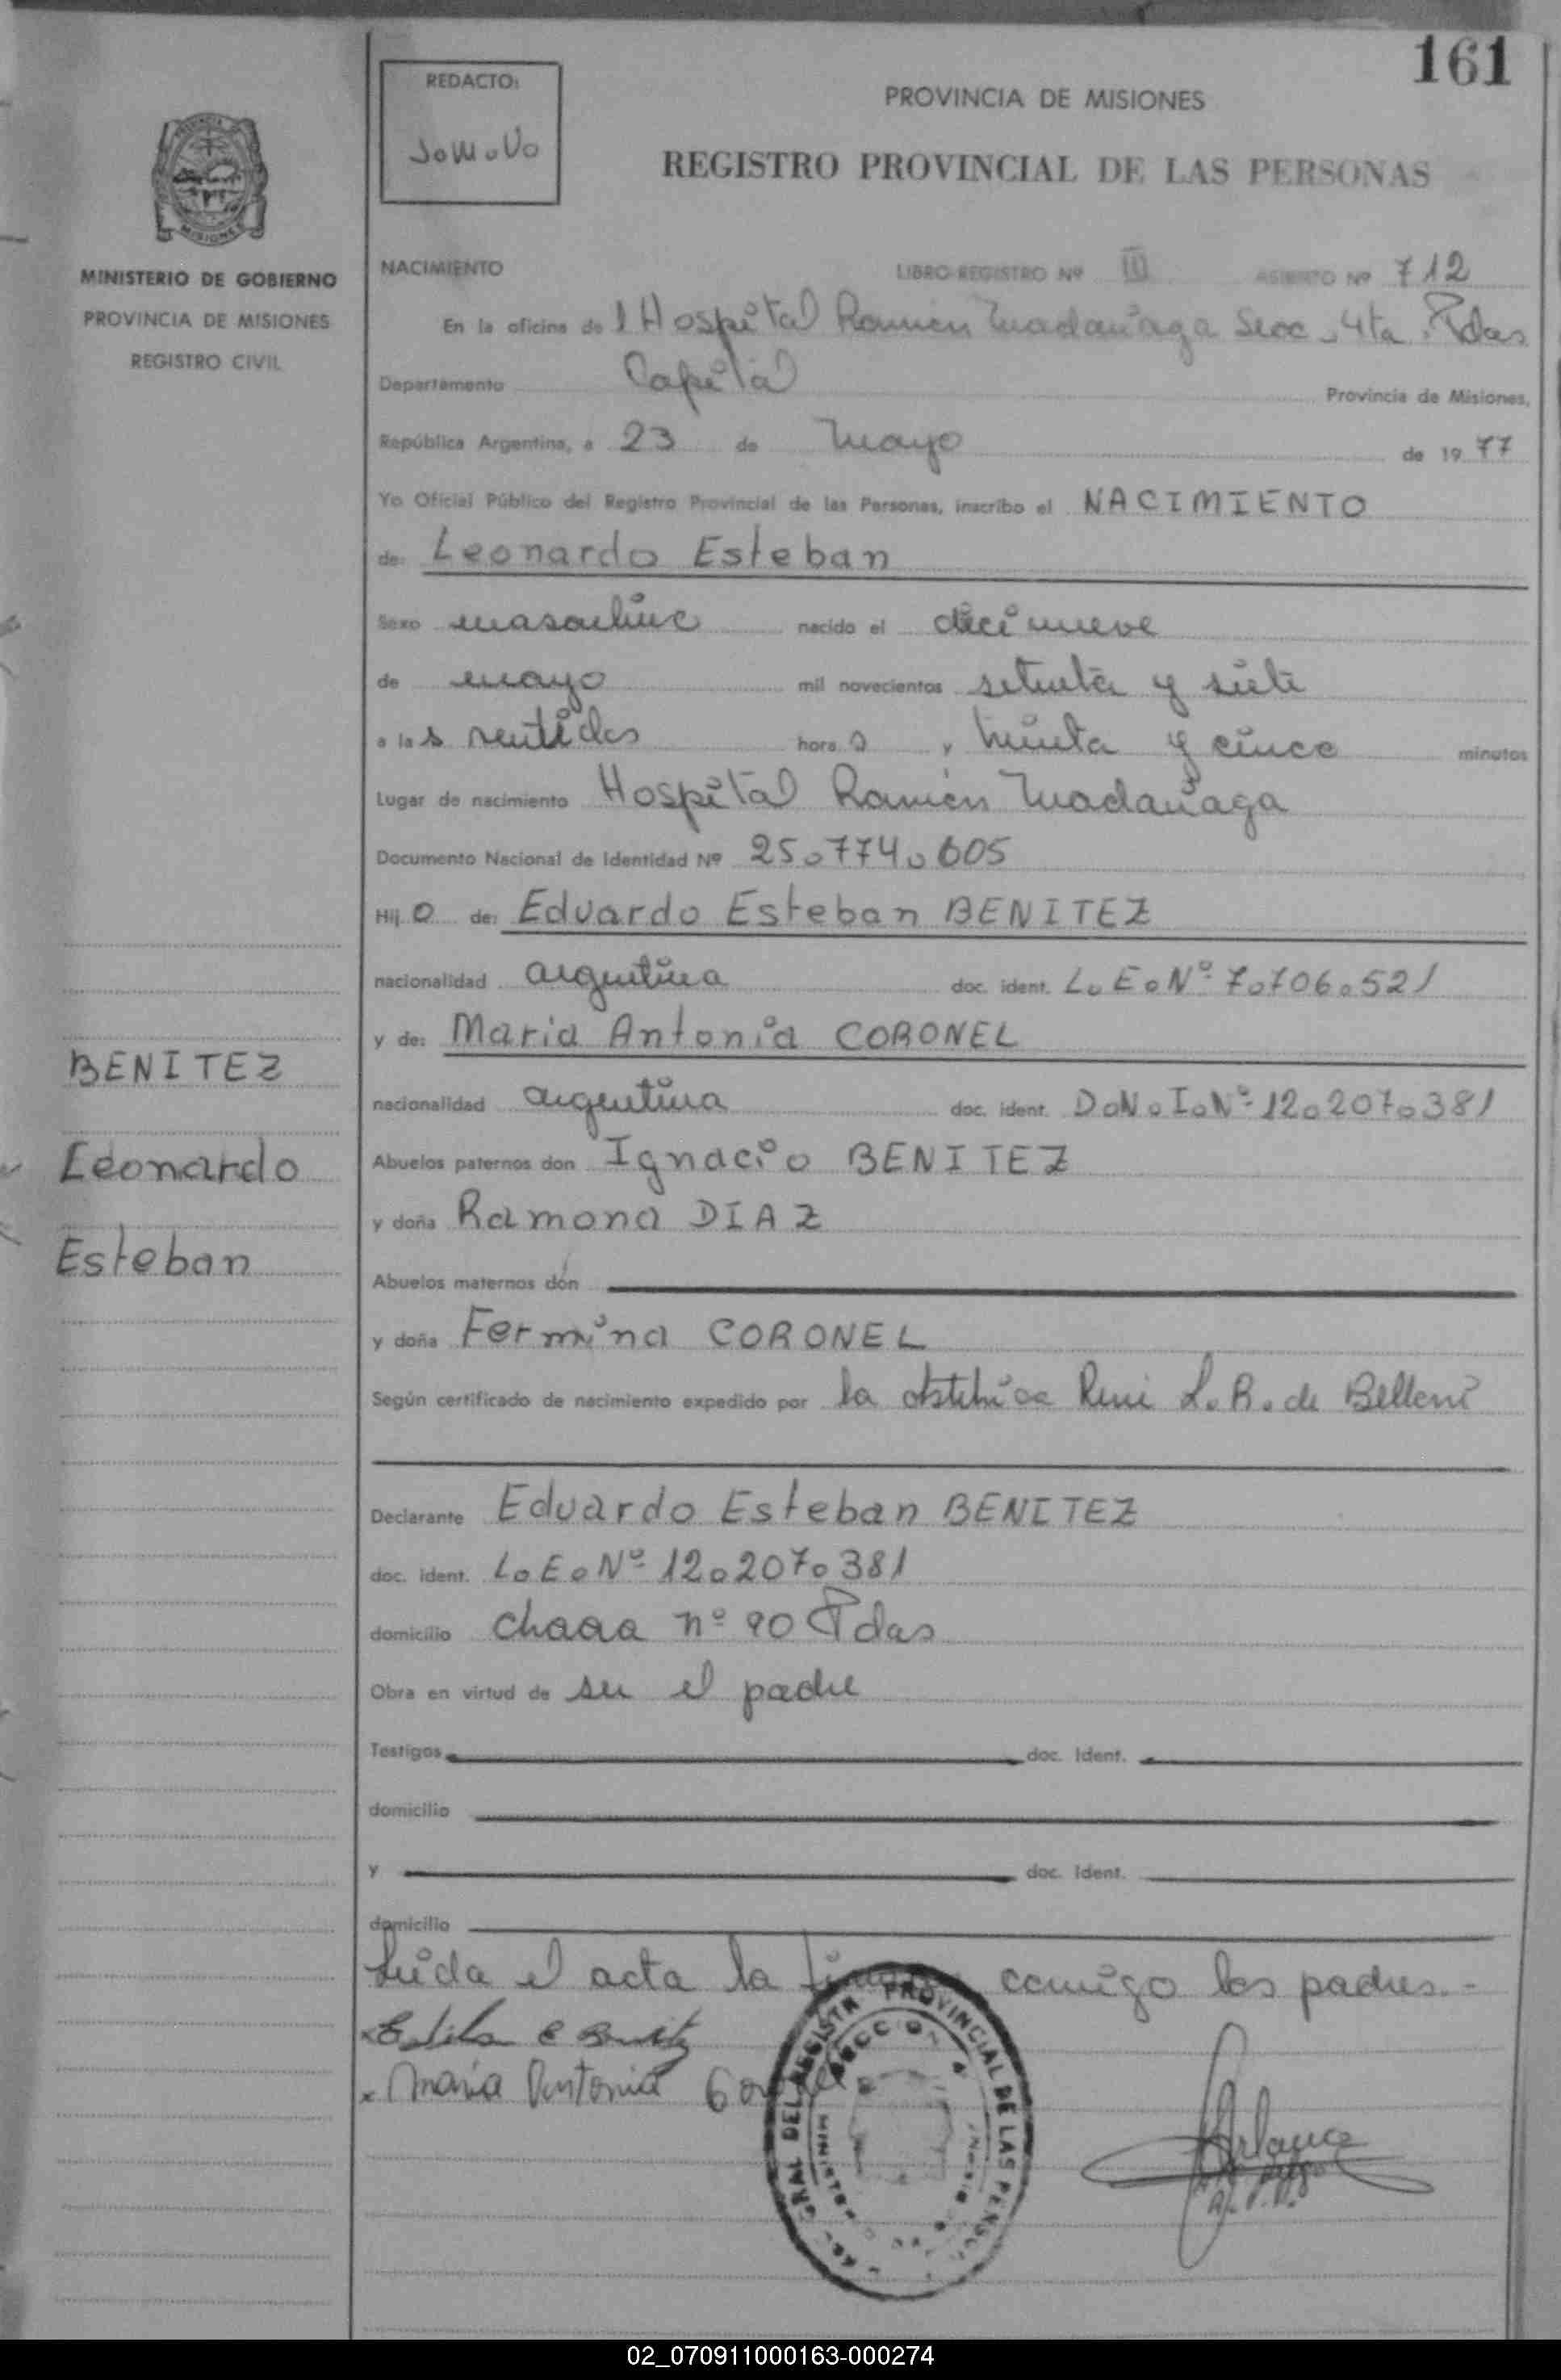 161
REDACTO:
PROVINCIA DE MISIONES
REGISTRO PROVINCIAL DE LAS PERSONAS
MISIONES
MINISTERIO DE GOBIERNO
PROVINCIA DE MISIONES
REGISTRO CIVIL
NACIMIENTO LIBRO-REGISTRO Nº III ASIENTO Nº 712
En la oficina del Hospital Ramón Madariaga Secc. 4ta. Pdas
Departamento Capital Provincia de Misiones,
República Argentina, a 23 de mayo de 1977
Yo Oficial Público del Registro Provincial de las Personas, inscribo el NACIMIENTO
de: Leonardo Esteban
Sexo masculino nacido el diecinueve
de mayo mil novecientos setenta y siete
a las veintidos horas y treinta y cinco minutos
Lugar de nacimiento Hospital Ramón Madariaga
Documento Nacional de Identidad Nº 25.774.605
Hijo de: Eduardo Esteban BENITEZ
nacionalidad argentina doc. ident. L.E.Nº 7.706.521
y de: Maria Antonia CORONEL
nacionalidad argentina doc. ident. D.N.I.Nº 12.207.381
Abuelos paternos don Ignacio BENITEZ
y doña Ramona DIAZ
Abuelos maternos don
y doña Fermina CORONEL
Según certificado de nacimiento expedido por la obstetrica L.B. de Belloni
Declarante Eduardo Esteban BENITEZ
doc. ident. L.E.Nº 12.207.381
domicilio chacra nº 90 Pdas
Obra en virtud de ser el padre
Testigos doc. Ident.
domicilio
y doc. Ident.
domicilio
Leida el acta la firman comigo los padres.-
Maria Antonia Coronel
BENITEZ
Leonardo
Esteban
GRAL DEL REGISTR PROVINCIAL DE LAS PERSO
SECCION 4
02_070911000163-000274